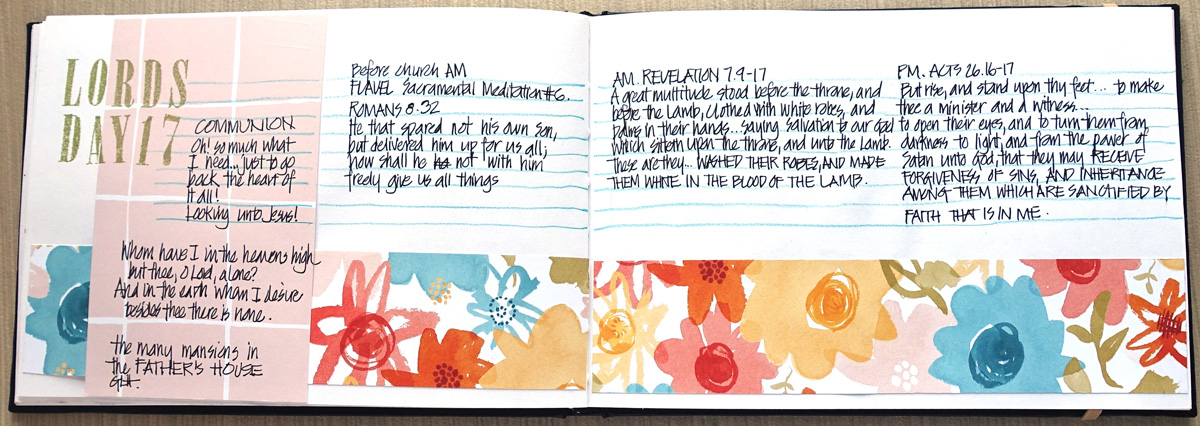 LORDS
DAY 17
COMMUNION
Oh! so much what
I need...just to go
back the heart of
it all!
Looking unto Jesus!
Whom have I in the heavens high
but thee, O Lord, alone?
And in the earth whom I desire
besides thee there is none.
the many mansions in
the FATHER'S HOUSE
Before church AM
FLAVEL Sacramental Meditation #6.
ROMANS 8.32
He that spared not his own son,
but delivered him up for us all;
how shall he not with him
freely give us all things
AM. REVELATION 7.9-17
A great multitude stood before the throne, and
before the Lamb, clothed with white robes, and
palms in their hands...saying salvation to our God
which sitteth upon the throne, and unto the Lamb.
These are they... WASHED THEIR ROBES, AND MADE
THEM WHITE IN THE BLOOD OF THE LAMB.
PM. ACTS 26.16-17
But rise, and stand upon thy feet... to make
thee a minister and a witness...
to open their eyes, and to turn them from
darkness to light, and from the power of
Satan unto God, that they may RECEIVE
FORGIVENESS OF SINS, AND INHERITANCE
AMONG THEM WHICH ARE SANCTIFIED BY
FAITH THAT IS IN ME.